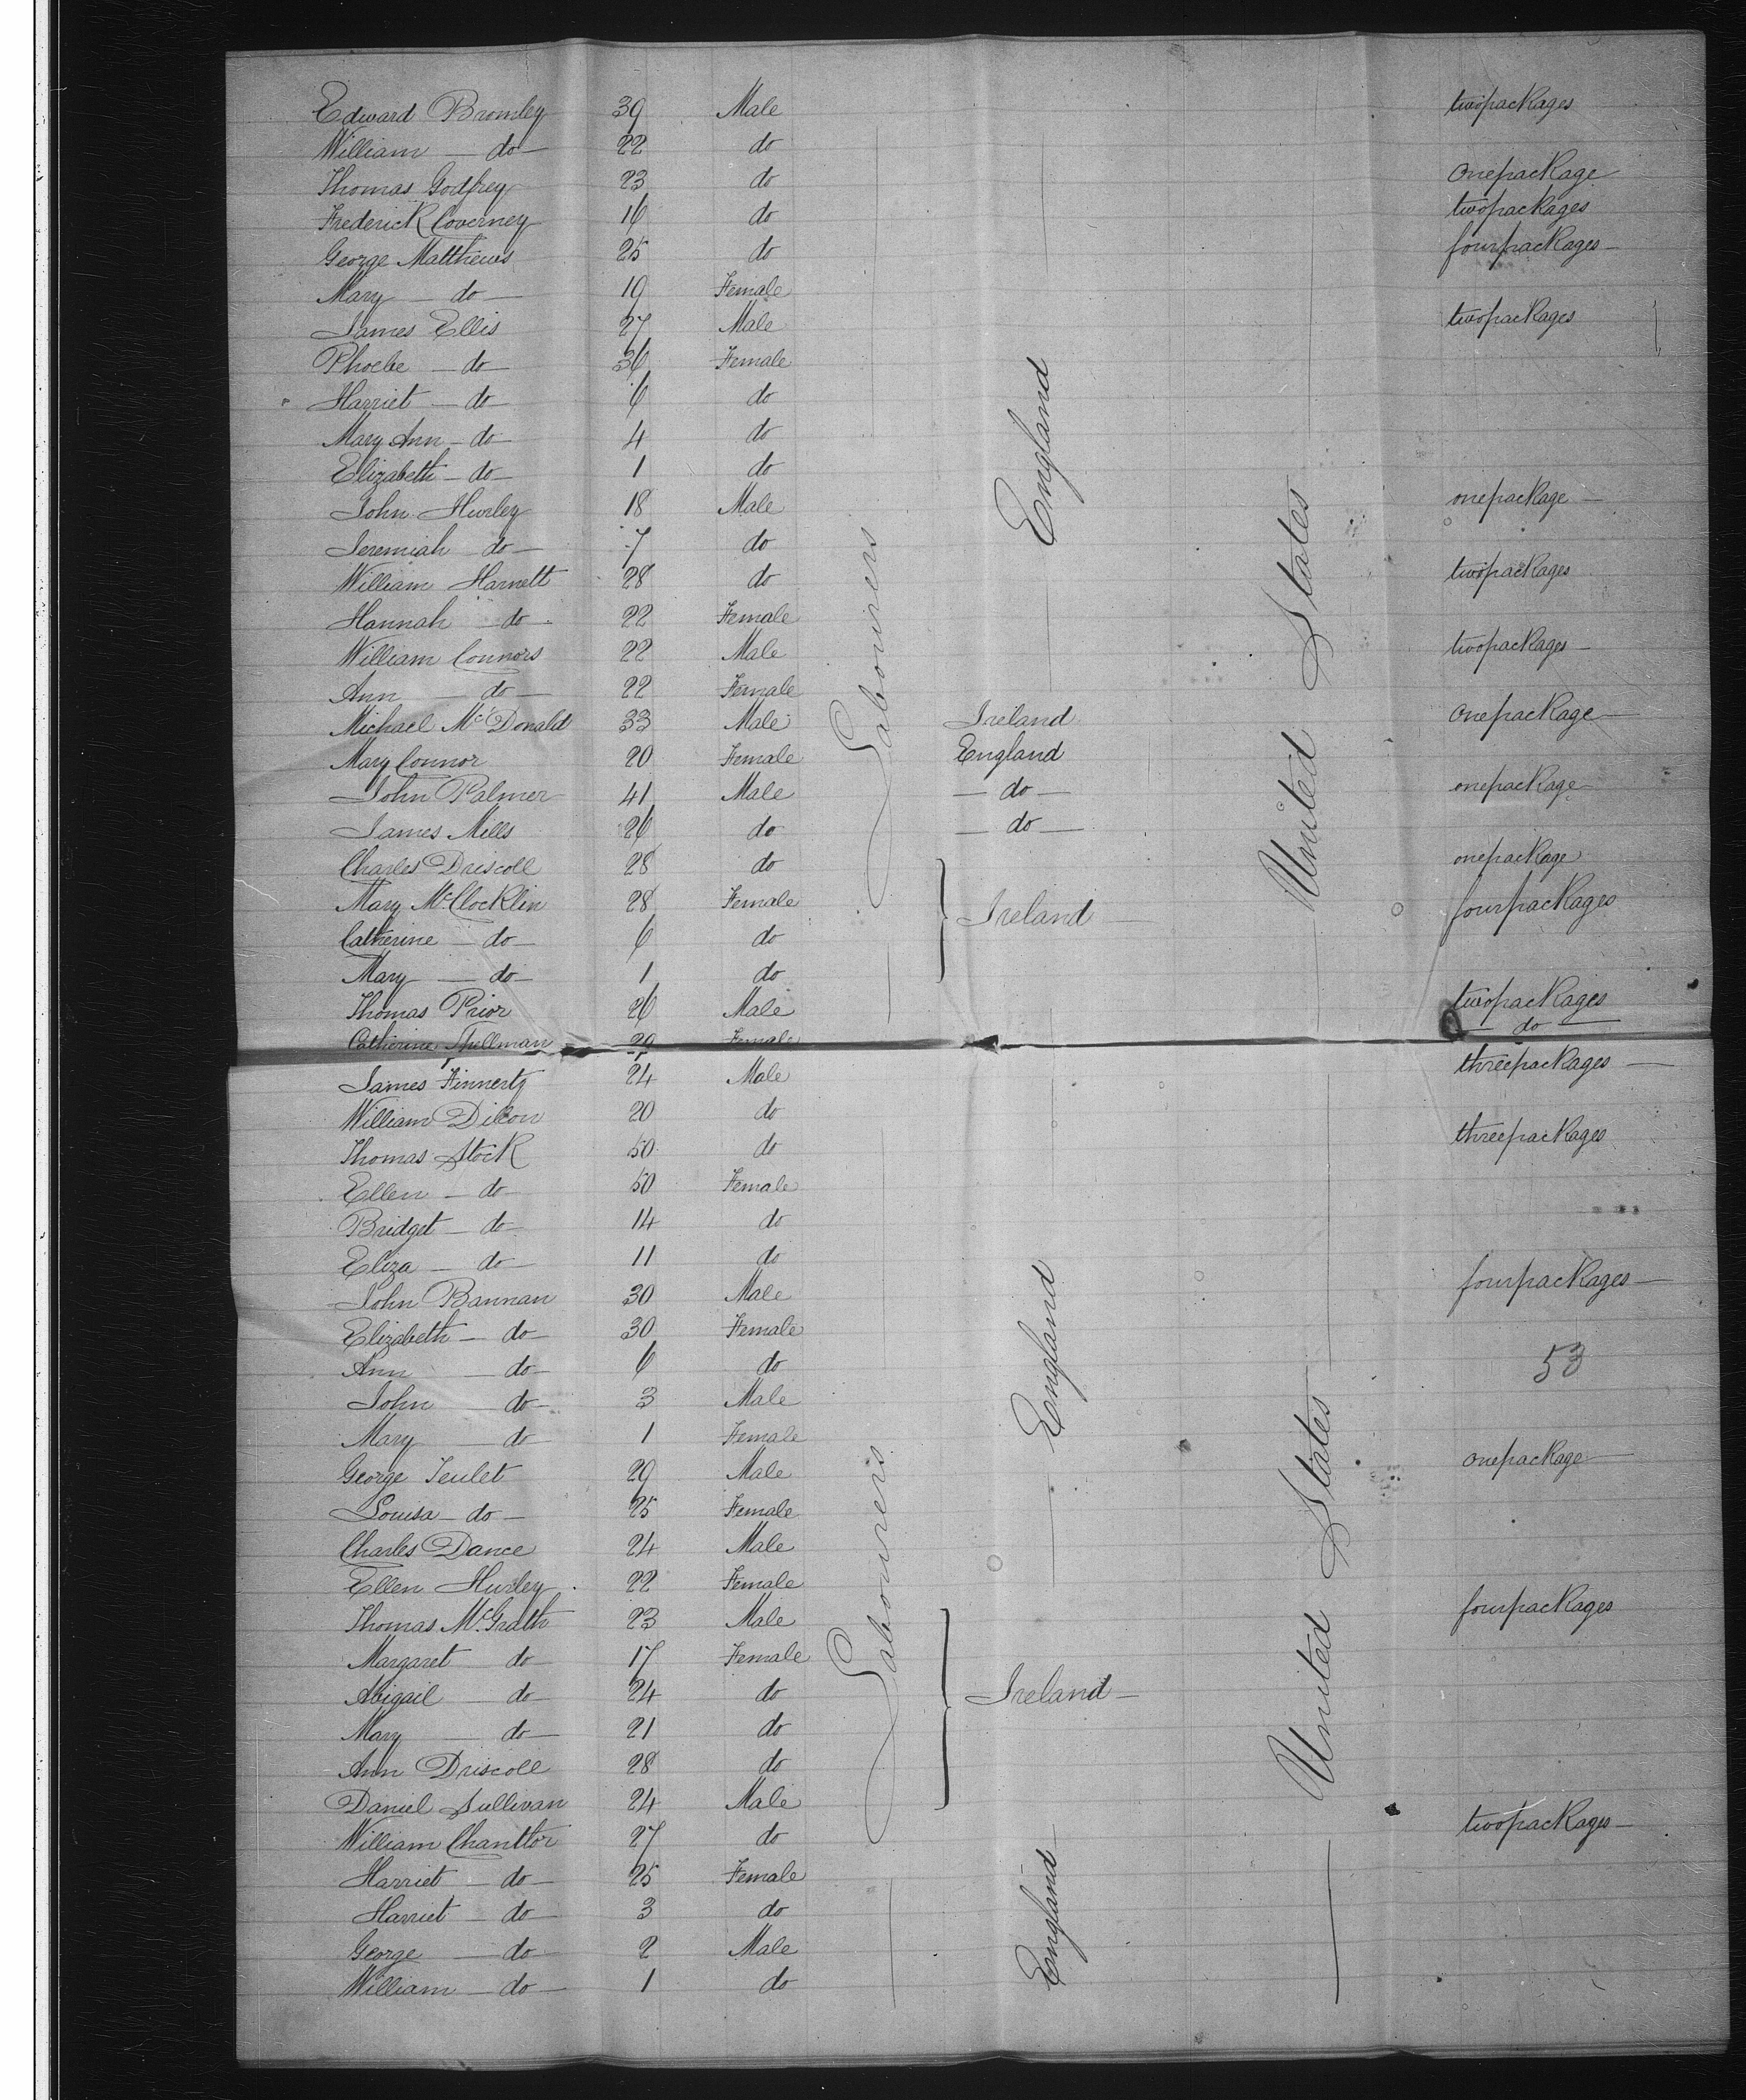 Edward Bromley 39 Male twopackages
William — do — 22 do
Thomas Godfrey 23 do Onepackage
Frederick Coverney 16 do twopackages
George Matthews 25 do fourpackages —
Mary — do — 19 Female
James Ellis 27 Male twopackages
Phoebe — do — 36 Female
Harriet — do — 6 do
Mary Ann — do — 4 do
Elizabeth — do — 1 do
England
John Hurley 18 Male onepackage —
Jeremiah — do — 7 do
William Harnett 28 do twopackages
Hannah — do — 22 Female
William Connors 22 Male twopackages —
Ann — do — 22 Female
Labourers
United States
Michael McDonald 33 Male Ireland Onepackage —
Mary Connor 20 Female England
John Palmer 41 Male — do — onepackage —
James Mills 26 do — do —
Charles Driscoll 28 do onepackage
Mary McClocklin 28 Female Ireland — fourpackages
Catherine — do — 6 do
Mary — do — 1 do
Thomas Prior 26 Male twopackages
Catherine Spellman 20 Female — do —
James Finnerty 24 Male threepackages —
William Dillon 20 do
Thomas Stock 50 do threepackages
Ellen — do — 50 Female
Bridget — do — 14 do
Eliza — do — 11 do
John Bannan 30 Male fourpackages —
Elizabeth — do — 30 Female
Ann — do — 6 do 53
John — do — 3 Male
England
Mary — do — 1 Female
George Teulet 29 Male onepackage —
Louisa — do — 25 Female
Charles Dance 24 Male
Ellen Hurley 22 Female
Thomas McGrath 23 Male fourpackages
Labourers
United States
Margaret — do — 17 Female
Abigail — do — 24 do Ireland —
Mary — do — 21 do
Ann Driscoll 28 do
Daniel Sullivan 24 Male
William Chanttor 27 do twopackages —
Harriet — do — 25 Female
Harriet — do — 3 do
England
George — do — 2 Male
William — do — 1 do